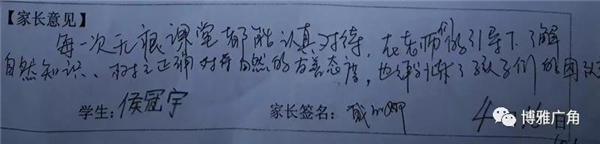 【家长意见】
每一次无痕课堂都能认真对待,在老师们的引导下了解
自然知识、树立正确对待自然的友善态度,也训练了孩子们的团队
学生:侯冠宇 家长签名: 4月16日
博雅广角